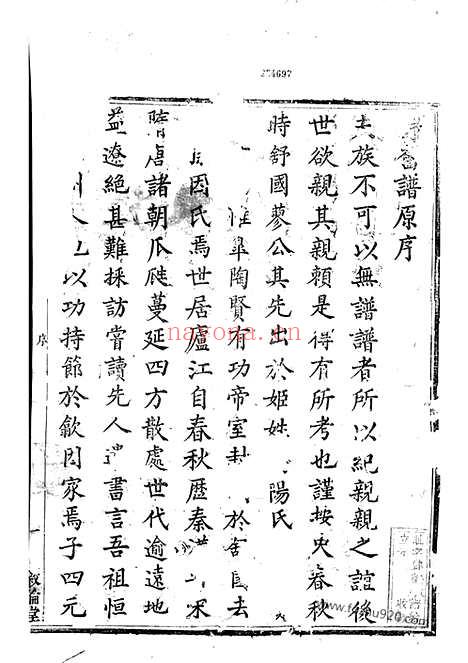 274697
譜原序
族不可以無譜譜者所以紀親親之誼後
世欲親其親賴是得有所考也謹按史春秋
時舒國蓼公其先出於姬姓 陽氏
皐陶賢有功帝室封 於舒 去
因氏焉世居廬江自春秋歷秦 宋
隋唐諸朝瓜瓞蔓延四方散處世代逾遠地
益遼絕甚難採訪嘗讀先人 書言吾祖恒
以功持節於歙因家焉子四元
序
一
敘倫堂
nayona.cn
www.foxu920.com